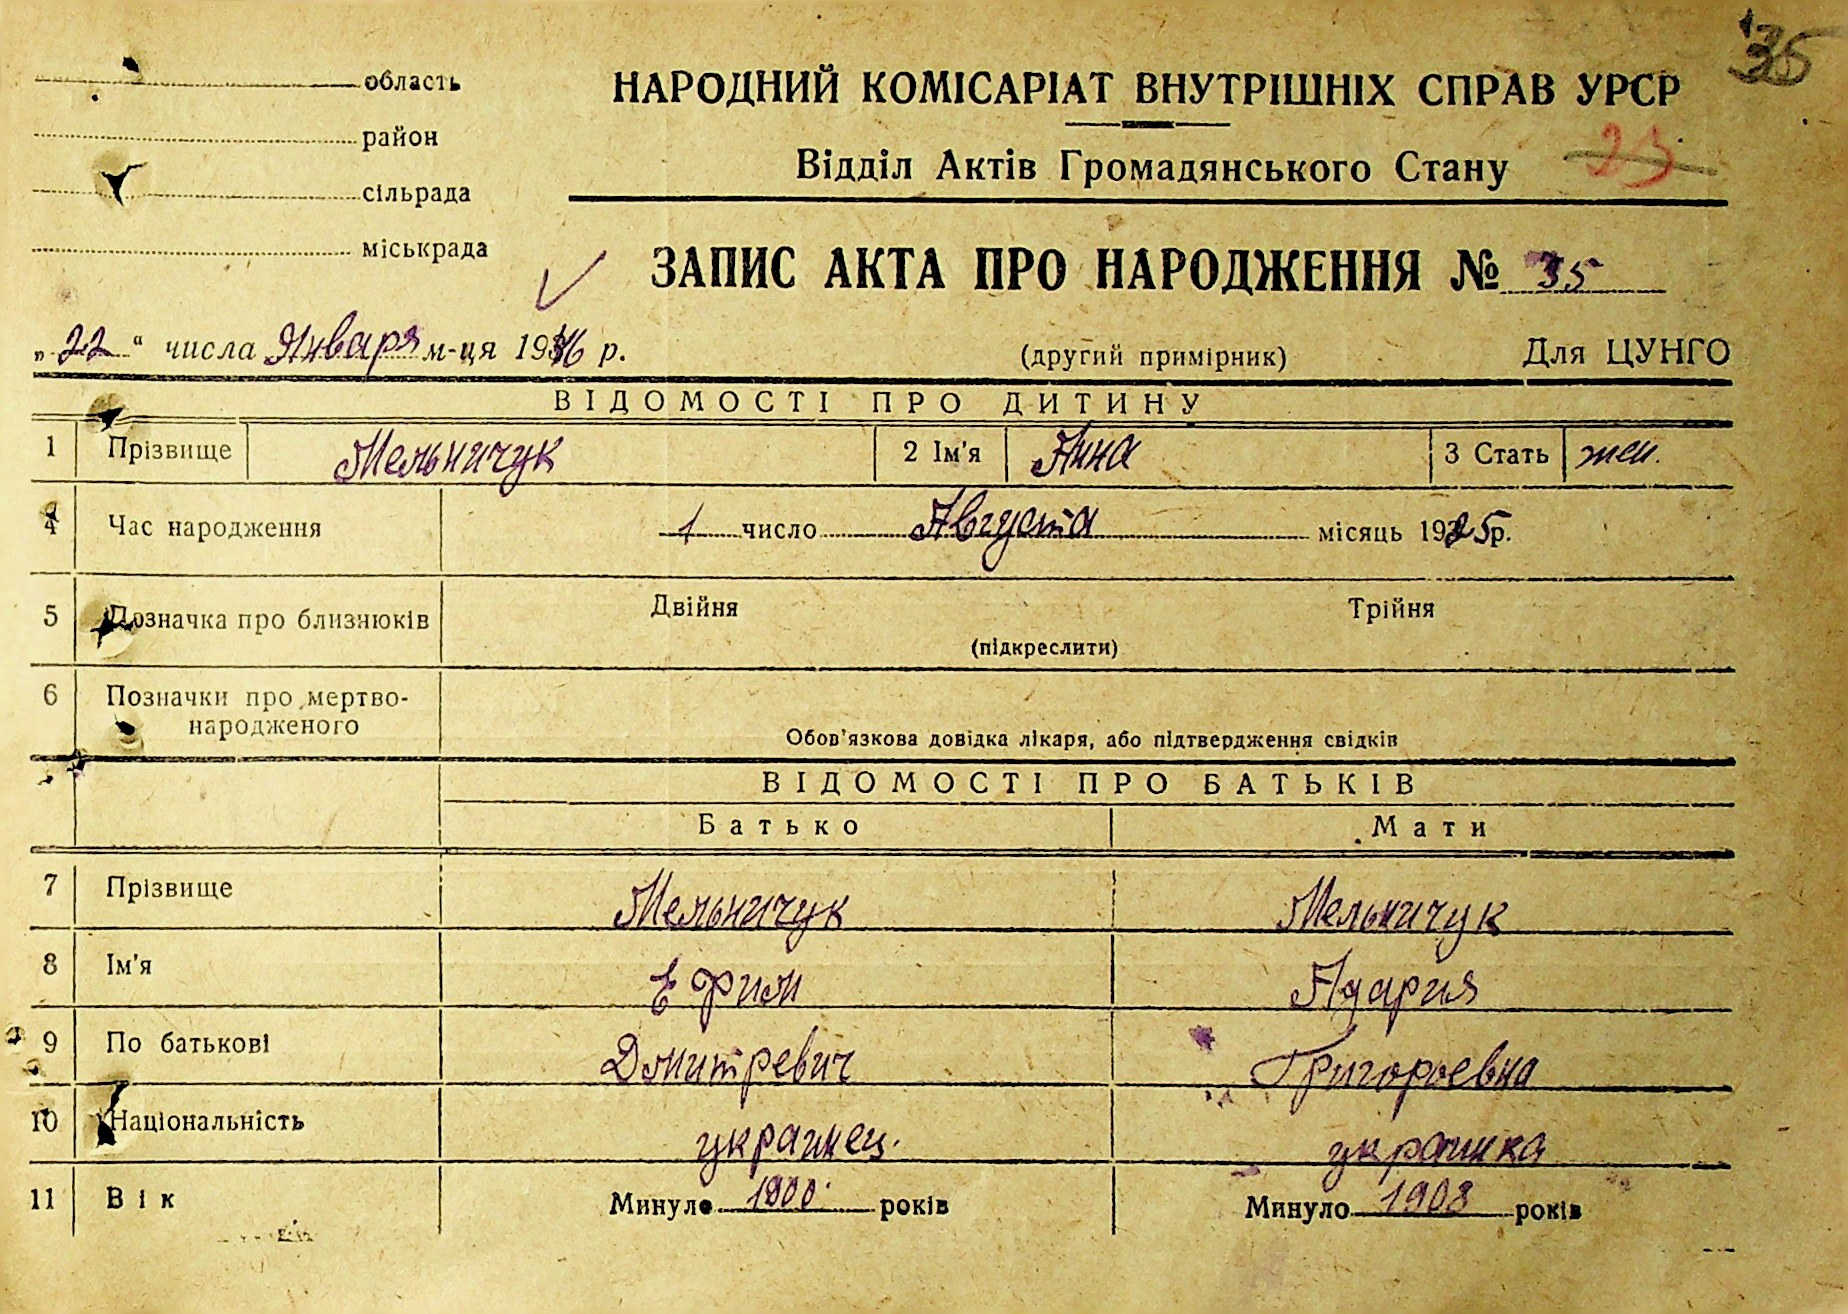 35
область
НАРОДНИЙ КОМІСАРІАТ ВНУТРІШНІХ СПРАВ УРСР
район
Відділ Актів Громадянського Стану 23
сільрада
міськрада
ЗАПИС АКТА ПРО НАРОДЖЕННЯ № 35
„22“ числа Января м-ця 1946 р. (другий примірник) Для ЦУНГО
ВІДОМОСТІ ПРО ДИТИНУ
1 Прізвище Мельничук 2 Ім'я Нина 3 Стать жен.
4 Час народження 1 число Августа місяць 1925р.
5 Позначка про близнюків Двійня Трійня
(підкреслити)
6 Позначки про мертво-
народженого
Обов'язкова довідка лікаря, або підтвердження свідків
ВІДОМОСТІ ПРО БАТЬКІВ
Батько Мати
7 Прізвище Мельничук Мельничук
8 Ім'я Ефим
9 По батькові Дмитревич Григорьевна
10 Національність украинец. украинка
11 Вік Минуло 1900 років Минуло 1908 років